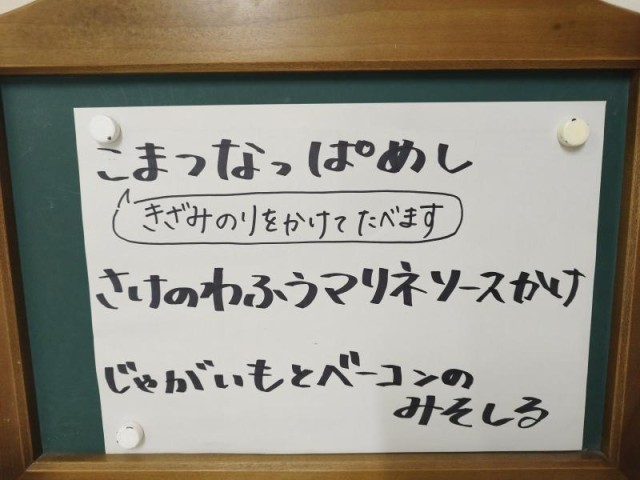 こまつなっぱめし
きざみのりをかけてたべます
さけのわふうマリネソースがけ
じゃがいもとベーコンの
みそしる